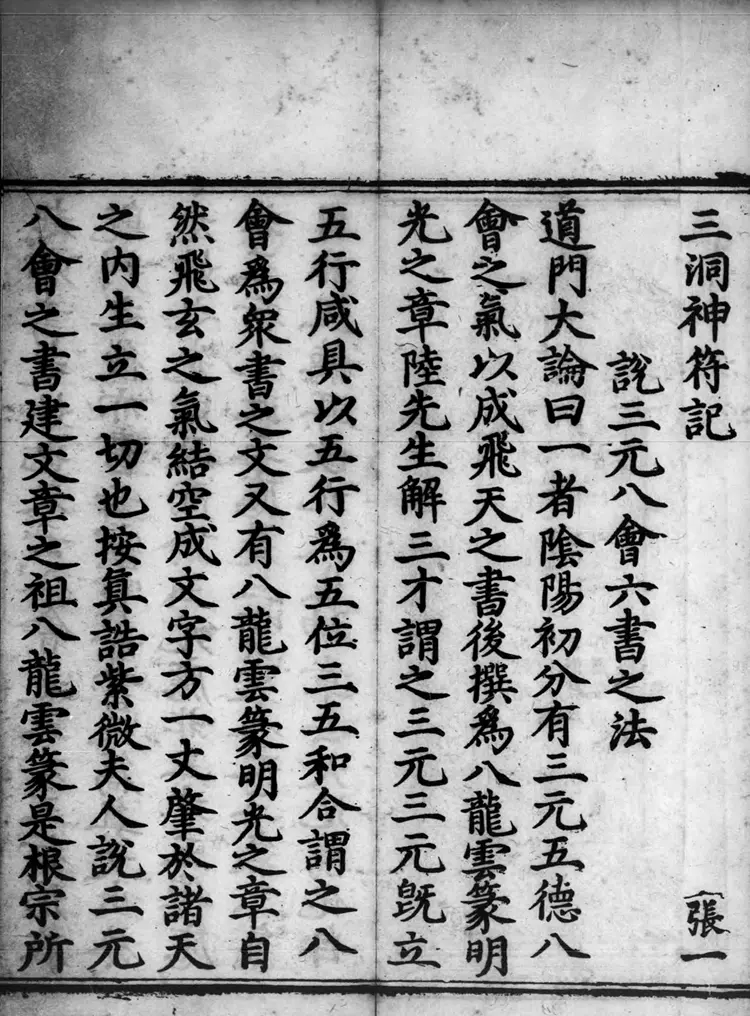 三洞神符記
張一
說三元八會六書之法
道門大論曰一者陰陽初分有三元五德八
會之氣以成飛天之書後撰爲八龍雲篆明
光之章陸先生解三才謂之三元三元旣立
五行咸具以五行爲五位三五和合謂之八
會爲衆書之文又有八龍雲篆明光之章自
然飛玄之氣結空成文字方一丈肇於諸天
之内生立一切也按真誥紫微夫人說三元
八會之書建文章之祖八龍雲篆是根宗所